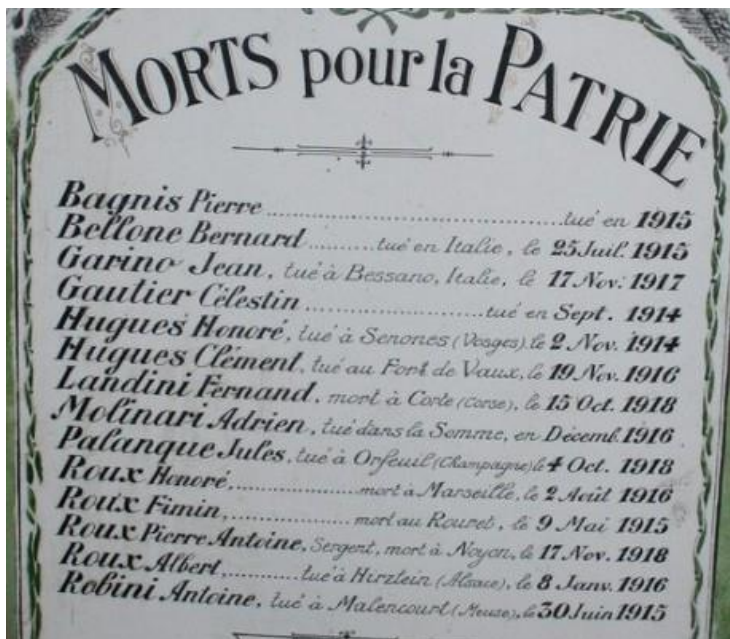 MORTS pour la PATRIE
Bagnis Pierre ........................................ tué en 1915
Bellone Bernard .......... tué en Italie, le 25 Juil. 1915
Garino Jean, tué à Bessano, Italie, le 17 Nov. 1917
Gautier Célestin .......................... tué en Sept. 1914
Hugues Honoré, tué à Senones (Vosges), le 2 Nov. 1914
Hugues Clément, tué au Fort de Vaux, le 19 Nov. 1916
Landini Fernand, mort à Corte (Corse), le 15 Oct. 1918
Molinari Adrien, tué dans la Somme, en Décemb. 1916
Palanque Jules, tué à Orfeuil (Champagne) le 4 Oct. 1918
Roux Honoré, .................. mort à Marseille, le 2 Août 1916
Roux Fimin, .................. mort au Rouret, le 9 Mai 1915
Roux Pierre Antoine, Sergent, mort à Noyon, le 17 Nov. 1918
Roux Albert, .......... tué à Hirztein (Alsace), le 8 Janv. 1916
Robini Antoine, tué à Malencourt (Meuse), le 30 Juin 1915